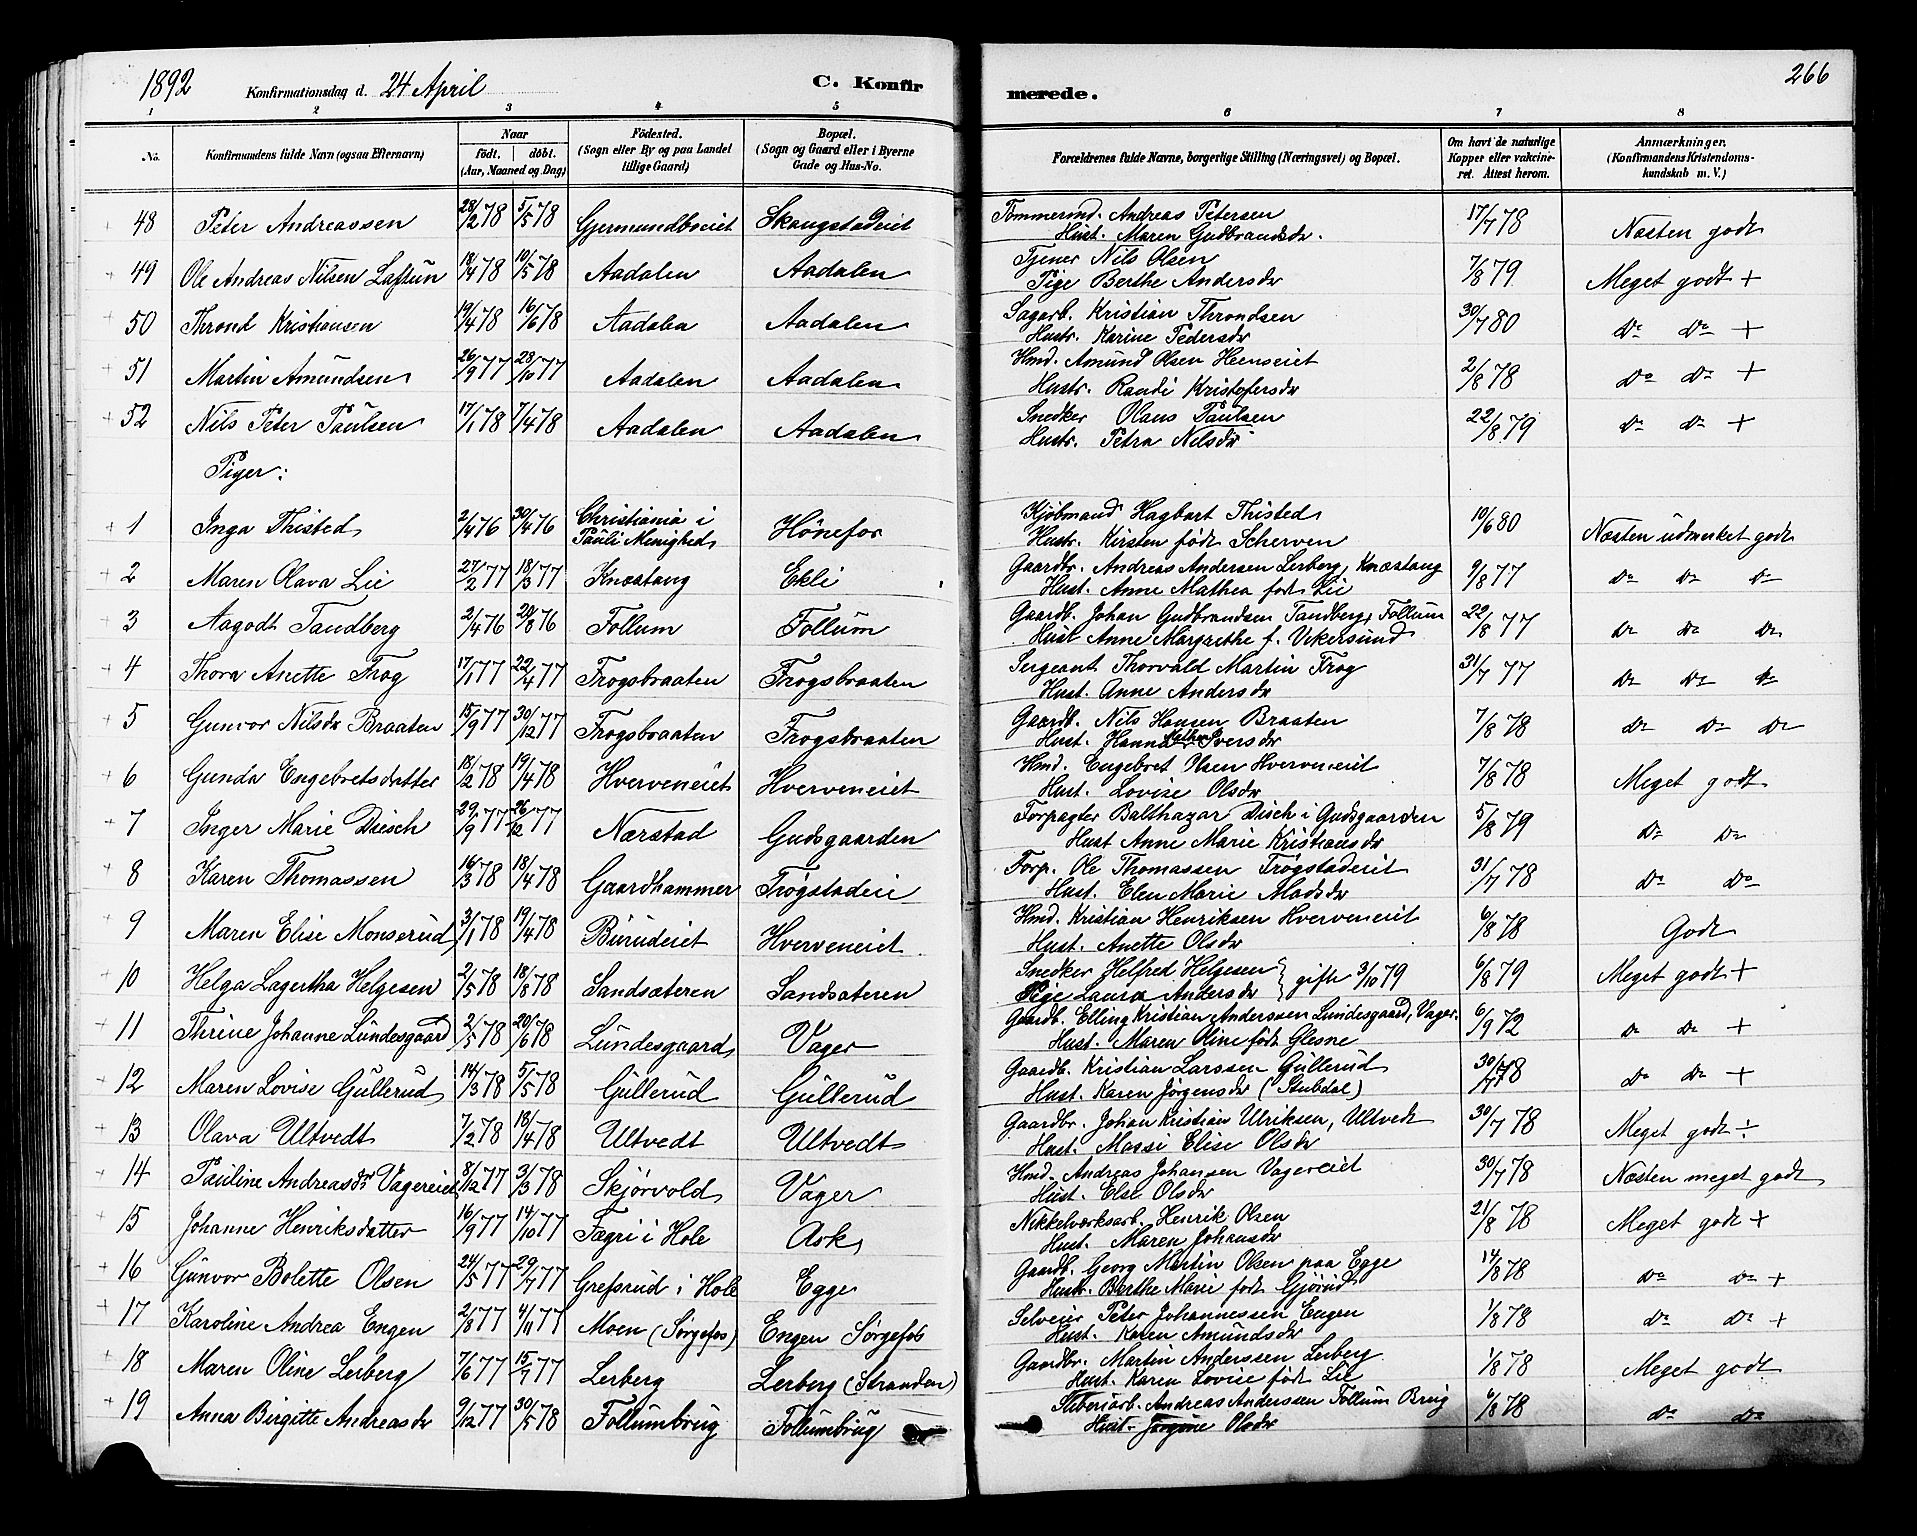 1892 Konfirmationsdag d. 24 April C. Konfir
merede. 266
1 2 3 4 5 6 7 8
No. Konfirmandens fulde Navn (ogsaa Efternavn) Naar födt. döbt. (Aar, Maaned og Dag) Födested. (Sogn eller By og paa Landet tillige Gaard) Bopæl. (Sogn og Gaard eller i Byerne Gade og Hus-No.
Forældrenes fulde Navne, borgerlige Stilling (Næringsvei) og Bopæl. Om havt de naturlige Kopper eller vakcineret. Attest herom. Anmærkninger. (Konfirmandens Kristendomskundskab m. V.)
48 Peter Andreassen 28/2 78 5/5 78 Gjermundboeiet Skaugstadeiet Tømmermd. Andreas Petersen 17/7 78 Næsten godt
Hust. Maren Gudbrandsdr.
49 Ole Andreas Nilsen 18/4 78 10/5 78 Aadalen Aadalen Tjener Nils Olsen 7/8 79 Meget godt +
Pige Berthe Andersdr
50 Thrond Kristiansen 19/4 78 16/6 78 Aadalen Aadalen Sagarb. Kristian Throndsen 30/7 80 Do Do +
Hustr. Karine Pedersdr
51 Martin Amundsen 26/9 77 28/10 77 Aadalen Aadalen Hmd. Amund Olsen Heenseiet 2/8 78 Do Do +
Hustr. Randi Kristofersdr
52 Nils Peter Paulsen 17/1 78 7/4 78 Aadalen Aadalen Snedker Olaus Paulsen 22/8 79 Do Do +
Hustr. Petra Nilsdr
Piger:
1 Inga Thisted 2/4 76 30/4 76 Christiania i Pauli Menighed Hönefos Kjöbmand Hagbart Thisted 10/6 80 Næsten udmerket godt
Hustr. Kirsten födt Scherven
2 Maren Olava Lie 27/2 77 18/3 77 Knæstang Ekli Gaardbr. Andreas Andersen Lerberg, Knæstang 9/8 77 Do Do Do
Hust. Anne Mathea födt Lie
3 Aagodt Tandberg 2/4 76 20/8 76 Follum Follum Gaardb. Johan Gudbrandsen Tandberg, Follum 22/8 77 Do Do Do
Hust Anne Margrethe f. Vikersund
4 Thora Anette Frog 17/1 77 22/4 77 Frogsbraaten Frogsbraaten Sergeant Thorvald Martin Frog 31/7 77 Do Do Do
Hust. Anne Andersdr
5 Gunvor Nilsdr Braaten 15/9 77 30/12 77 Frogsbraaten Frogsbraaten Gaardb. Nils Hansen Braaten 7/8 78 Do Do Do
Hust. Hanna Mathea Iversdr
6 Gunda Engebretsdatter 18/2 78 19/4 78 Hverveneiet Hverveneiet Hmd. Engebret Olsen Hverveneiet 7/8 78 Meget godt
Hust. Lovise Olsdr
7 Inger Marie Disch 29/9 77 26/12 77 Nærstad Gudsgaarden Forpagter Balthazar Disch i Gudsgaarden 5/8 79 Do Do
Hust Anne Marie Kristiansdr
8 Karen Thomassen 16/3 78 18/4 78 Gaardhammer Trøgstadeie Forp. Ole Thomassen Trøgstadeiet 31/7 78 Do Do
Hust. Elen Marie Madsdr
9 Maren Elise Monserud 3/1 78 19/4 78 Burudeiet Hverveneiet Hmd. Kristian Henriksen Hverveneiet 6/8 78 Godt
Hust. Anette Olsdr
10 Helga Lagertha Helgesen 2/5 78 18/8 78 Sandsæteren Sandsæteren Snedker Helfred Helgesen gifte 3/10 79 6/8 79 Meget godt +
Pige Laura Andersdr
11 Thrine Johanne Lundesgaard 2/5 78 20/6 78 Lundesgaard Vager Gaardb. Elling Kristian Anderssen Lundesgaard, Vager. 6/9 72 Do Do +
Hust. Maren Oline födt Glesne
12 Maren Lovise Gullerud 14/3 78 5/5 78 Gullerud Gullerud Gaardb. Kristian Larssen Gullerud 30/7 78 Do Do +
Hust. Karen Jørgensdr (Stubdal)
13 Olava Ultvedt 7/2 78 18/4 78 Ultvedt Ultvedt Gaardbr. Johan Kristian Ulriksen, Ultvedt 30/7 78 Meget godt ÷
Hust. Massi Elise Olsdr
14 Pauline Andreasdr Vagereiet 8/12 77 3/3 78 Skjörvold Vager Hmd. Andreas Johansen Vagereiet 30/7 78 Næsten meget godt
Hust. Else Olsdr
15 Johanne Henriksdatter 16/9 77 14/10 77 Fægri i Hole Ask Nikkelværksarb. Henrik Olsen 21/8 78 Meget godt +
Hust. Maren Johansdr
16 Gunvor Bolette Olsen 24/5 77 29/7 77 Grefsrud i Hole Egge Gaardb. Georg Martin Olsen paa Egge 14/8 78 Do Do +
Hustr. Berthe Marie født Gjørud
17 Karoline Andrea Engen 2/8 77 4/11 77 Moen (Sörgefos) Engen Sörgefos Selveier Peter Johannessen Engen 1/8 78 Do Do +
Hust. Karen Amundsdr
18 Maren Oline Lerberg 7/6 77 15/7 77 Lerberg Lerberg (Stranden) Gaardbr. Martin Anderssen Lerberg 1/8 78 Meget godt
Hust. Karen Lovise födt Lie
19 Anna Birgitte Andreasdr 9/12 77 30/5 78 Follumbrug Follumbrug Sliberiarb. Andreas Anderssen Follum Brug 6/8 78 Do Do
Hust. Jørgine Olsdr